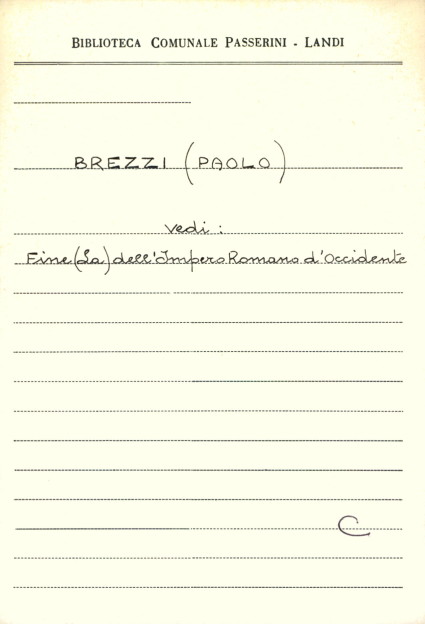 BIBLIOTECA COMUNALE PASSERINI - LANDI
BREZZI (PAOLO)
vedi:
Fine (La) dell'Impero Romano d'Occidente
C